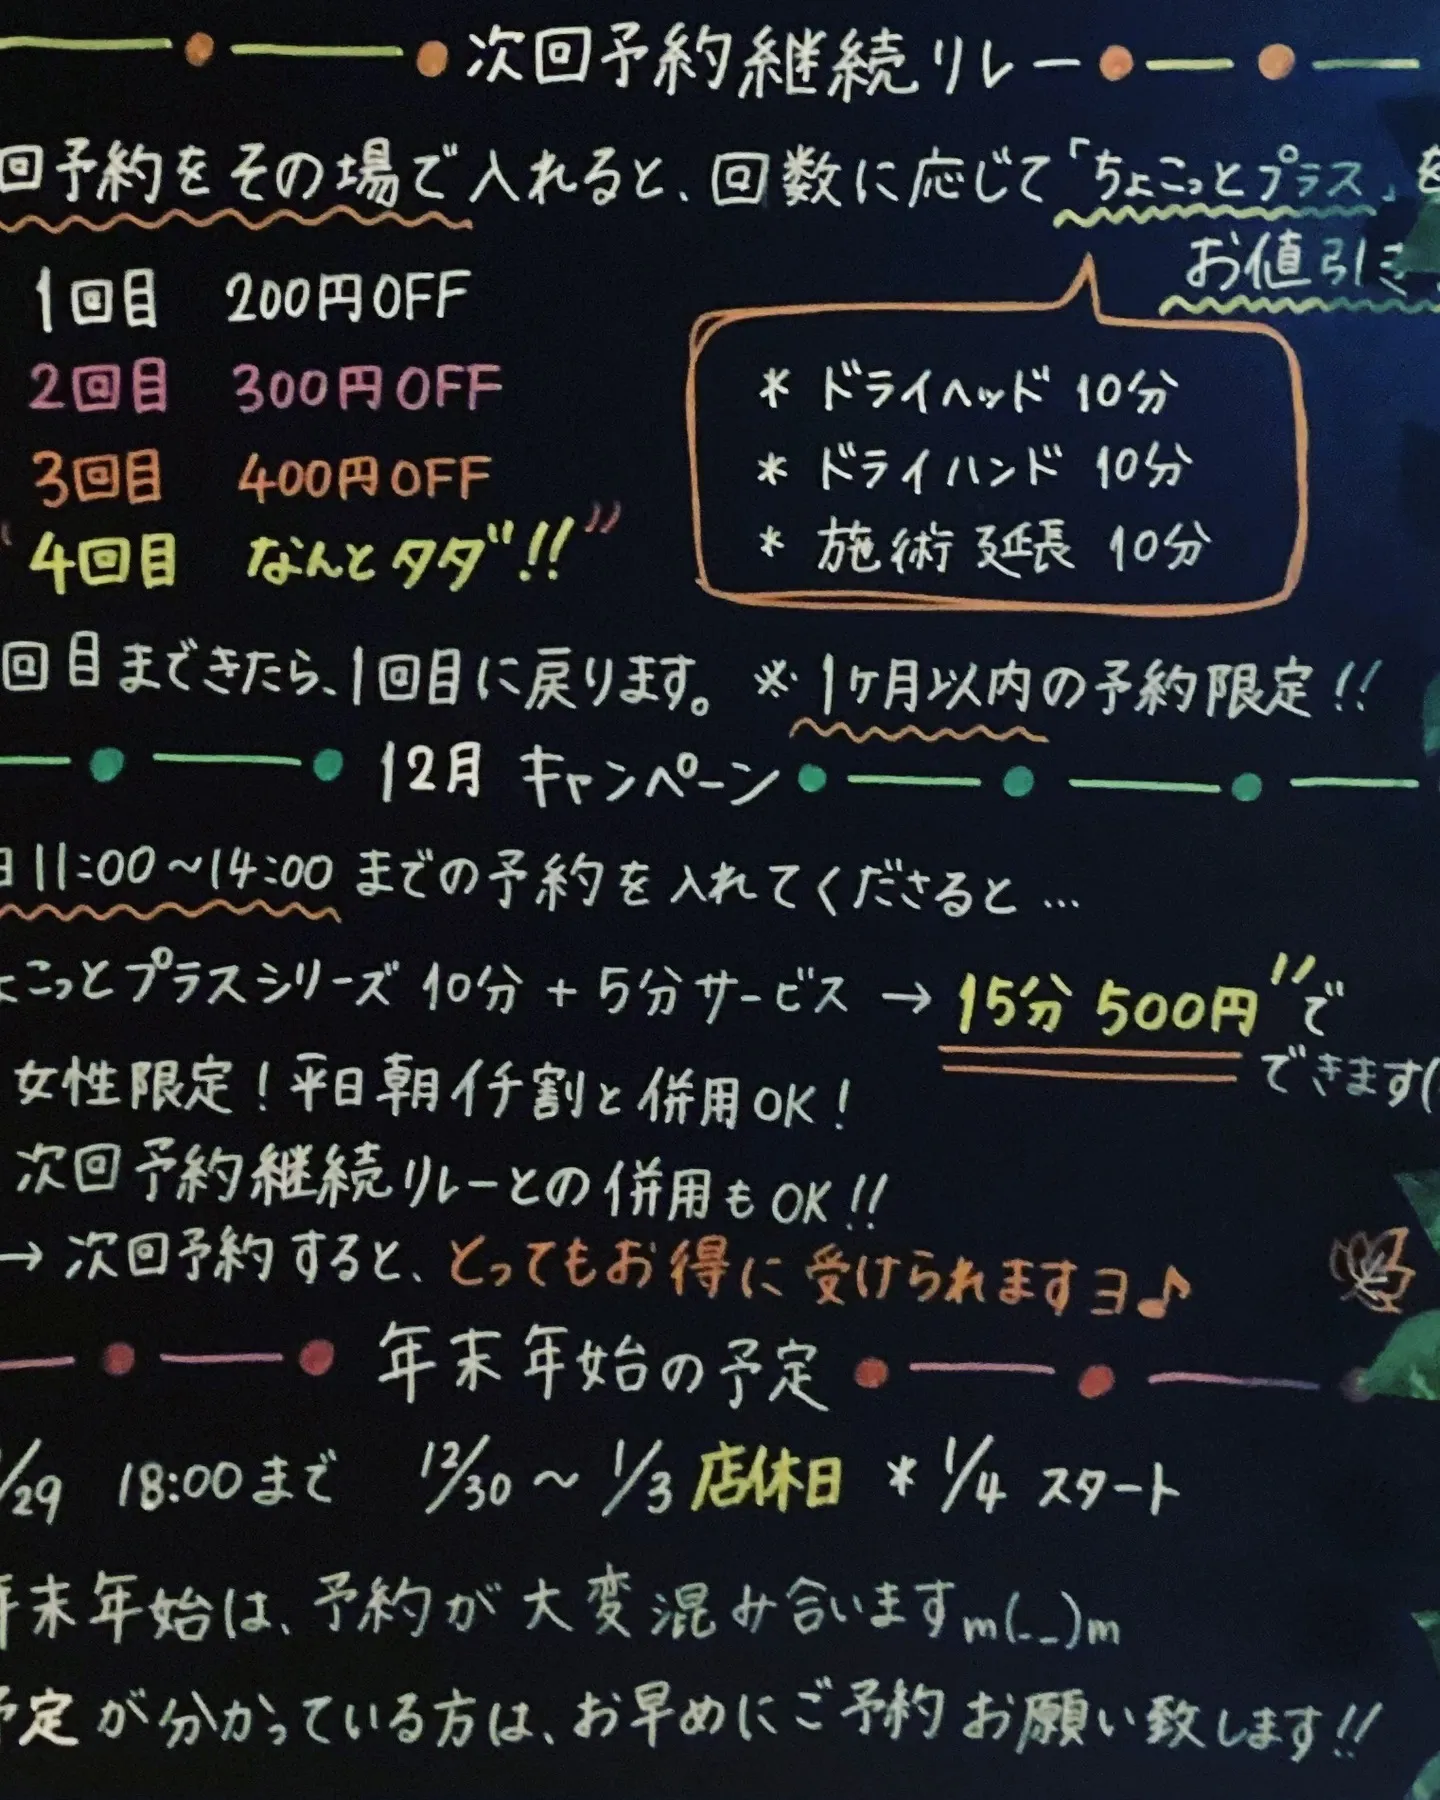 次回予約継続リレー
回予約をその場で入れると、回数に応じて「ちょこっとプラス」を
お値引き
1回目 200円OFF
2回目 300円OFF
3回目 400円OFF
"4回目 なんとタダ"!!"
* ドライヘッド 10分
* ドライハンド 10分
* 施術延長 10分
回目まできたら、1回目に戻ります。 ※1ヶ月以内の予約限定!!
12月 キャンペーン
日11:00~14:00までの予約を入れてくださると…
ょこっとプラスシリーズ 10分+5分サービス → 15分 500円"で
できます(
女性限定!平日朝イチ割と併用OK!
次回予約継続リレーとの併用もOK!!
→次回予約すると、とってもお得に受けられますヨ♪
年末年始の予定
/29 18:00まで 12/30~1/3店休日 *1/4 スタート
年末年始は、予約が大変混み合いますm(_ _)m
予定が分かっている方は、お早めにご予約お願い致します!!